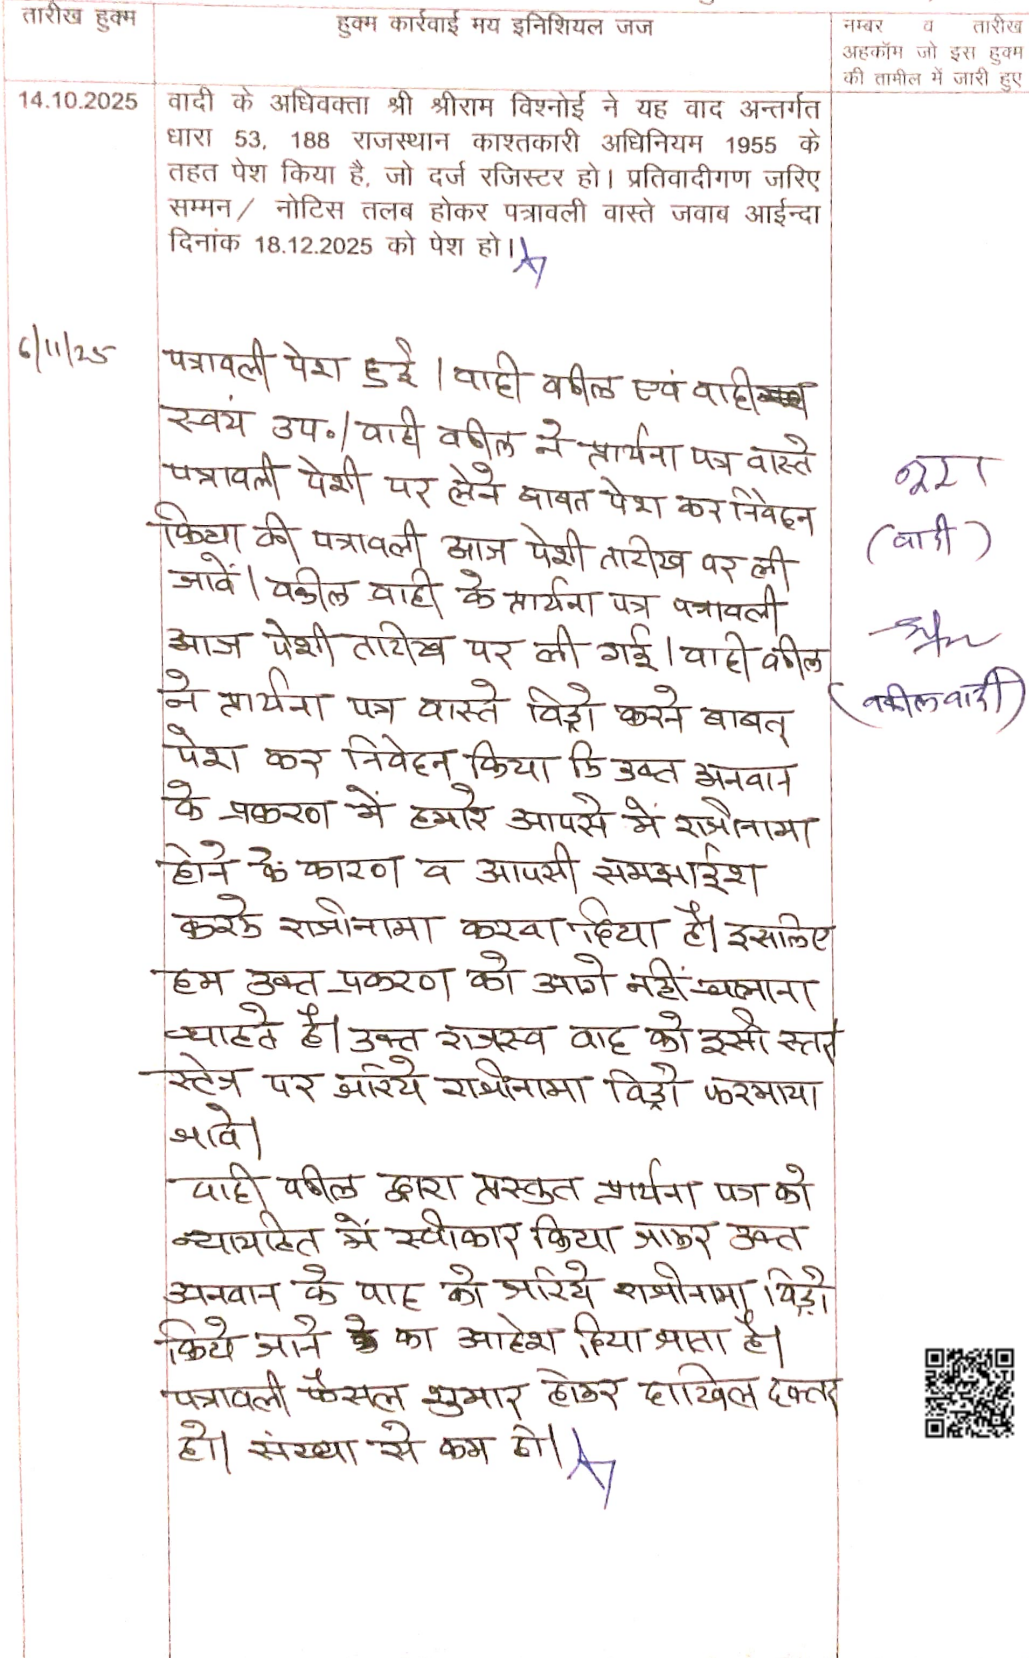 तारीख हुक्म
हुक्म कार्रवाई मय इनिशियल जज
नम्बर व तारीख
अहकॉम जो इस हुक्म
की तामील में जारी हुए
14.10.2025
वादी के अधिवक्ता श्री श्रीराम विश्नोई ने यह वाद अन्तर्गत
धारा 53, 188 राजस्थान काश्तकारी अधिनियम 1955 के
तहत पेश किया है, जो दर्ज रजिस्टर हो। प्रतिवादीगण जरिए
सम्मन/ नोटिस तलब होकर पत्रावली वास्ते जवाब आईन्दा
दिनांक 18.12.2025 को पेश हो।
6/11/25
पत्रावली पेश हुई। वादी वकील एवं वादी
स्वयं उप०। वादी वकील ने प्रार्थना पत्र वास्ते
पत्रावली पेशी पर लेने बाबत पेश कर निवेदन
किया की पत्रावली आज पेशी तारीख पर ली
जावें। वकील वादी के प्रार्थना पत्र पत्रावली
आज पेशी तारीख पर ली गई। वादी वकील
ने प्रार्थना पत्र वास्ते विड्रो करने बाबत्
पेश कर निवेदन किया कि उक्त अनवान
के प्रकरण में हमारे आपसे में राजीनामा
होने के कारण व आपसी समझाईश
करके राजीनामा करवा दिया है। इसलिए
हम उक्त प्रकरण को आगे नहीं चलाना
चाहते है। उक्त राजस्व वाद को इसी स्तर
स्टेज पर जरिये राजीनामा विड्रो फरमाया
जावे।
वादी वकील द्वारा प्रस्तुत प्रार्थना पत्र को
न्यायहित में स्वीकार किया जाकर उक्त
अनवान के वाद को जरिये राजीनामा विड्रो
किये जाने का आदेश दिया जाता है।
पत्रावली फैसल शुमार होकर दाखिल दफ्तर
हो। संख्या से कम हो।
(वादी)
(वकील वादी)